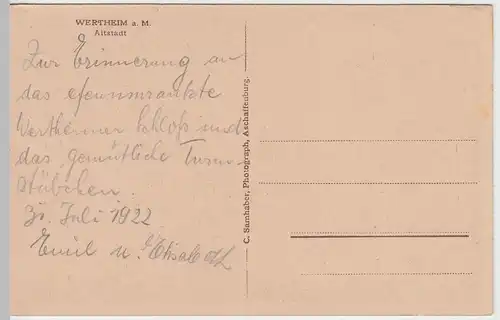 WERTHEIM a. M.
Altstadt
Zur Erinnerung an
das efeuumrankte
Wertheimer Schloß und
das gemütliche Turm-
stübchen.
31. Juli 1922
Emil u. Elisabeth
C. Samhaber, Photograph, Aschaffenburg.